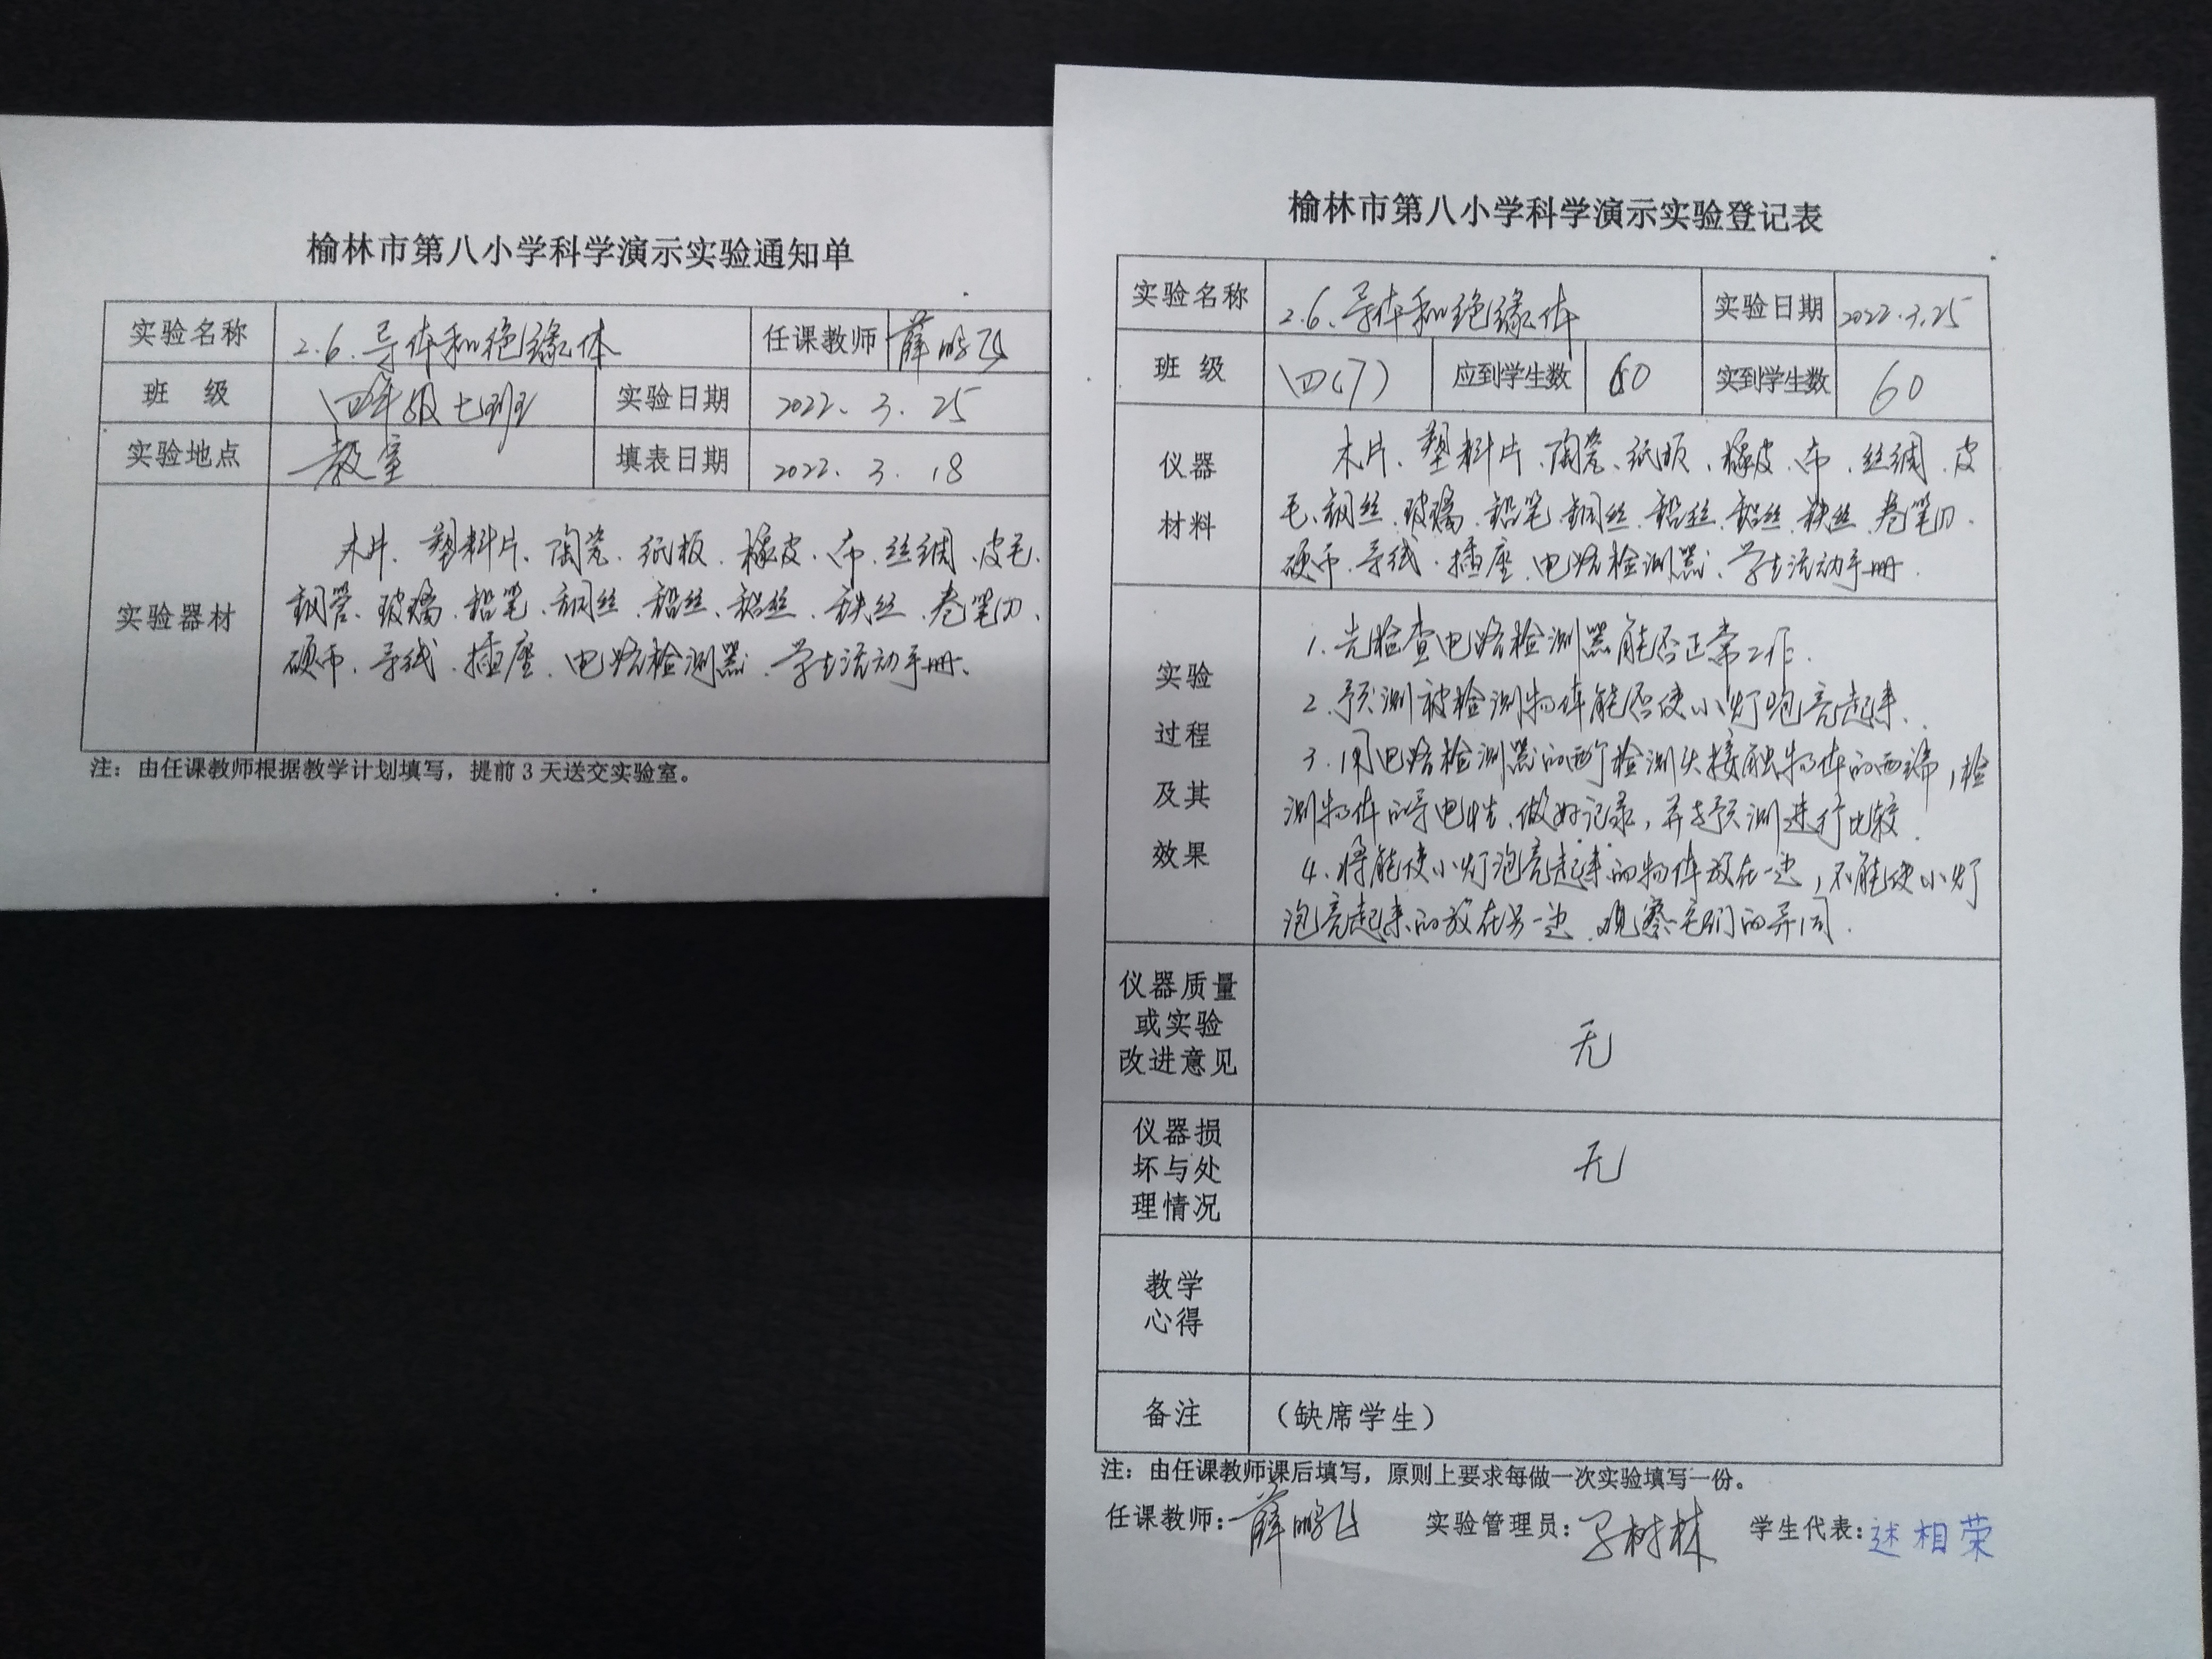 榆林市第八小学科学演示实验通知单
实验名称 2.6、导体和绝缘体 任课教师 薛鹏飞
班 级 四年级七班 实验日期 2022.3.25
实验地点 教室 填表日期 2022.3.18
实验器材
木片、塑料片、陶瓷、纸板、橡皮、布、丝绸、皮毛、
钢管、玻璃、铅笔、铜丝、铅丝、铝丝、铁丝、卷笔刀、
硬币、导线、插座、电路检测器、学生活动手册、
注：由任课教师根据教学计划填写，提前3天送交实验室。
榆林市第八小学科学演示实验登记表
实验名称 2.6、导体和绝缘体 实验日期 2022.3.25
班 级 四(7) 应到学生数 60 实到学生数 60
仪器
材料
木片、塑料片、陶瓷、纸板、橡皮、布、丝绸、皮
毛、钢丝、玻璃、铅笔、铜丝、铅丝、铝丝、铁丝、卷笔刀、
硬币、导线、插座、电路检测器、学生活动手册.
实验
过程
及其
效果
1.先检查电路检测器能否正常工作.
2.预测被检测物体能否使小灯泡亮起来、
3.用电路检测器的两个检测头接触物体的两端，检
测物体的导电性、做好记录，并与预测进行比较.
4、将能使小灯泡亮起来的物体放在一边，不能使小灯
泡亮起来的放在另一边、观察它们的异同.
仪器质量
或实验
改进意见
无
仪器损
坏与处
理情况
无
教学
心得
备注 （缺席学生）
注：由任课教师课后填写，原则上要求每做一次实验填写一份。
任课教师：薛鹏飞 实验管理员： 树林 学生代表： 相荣